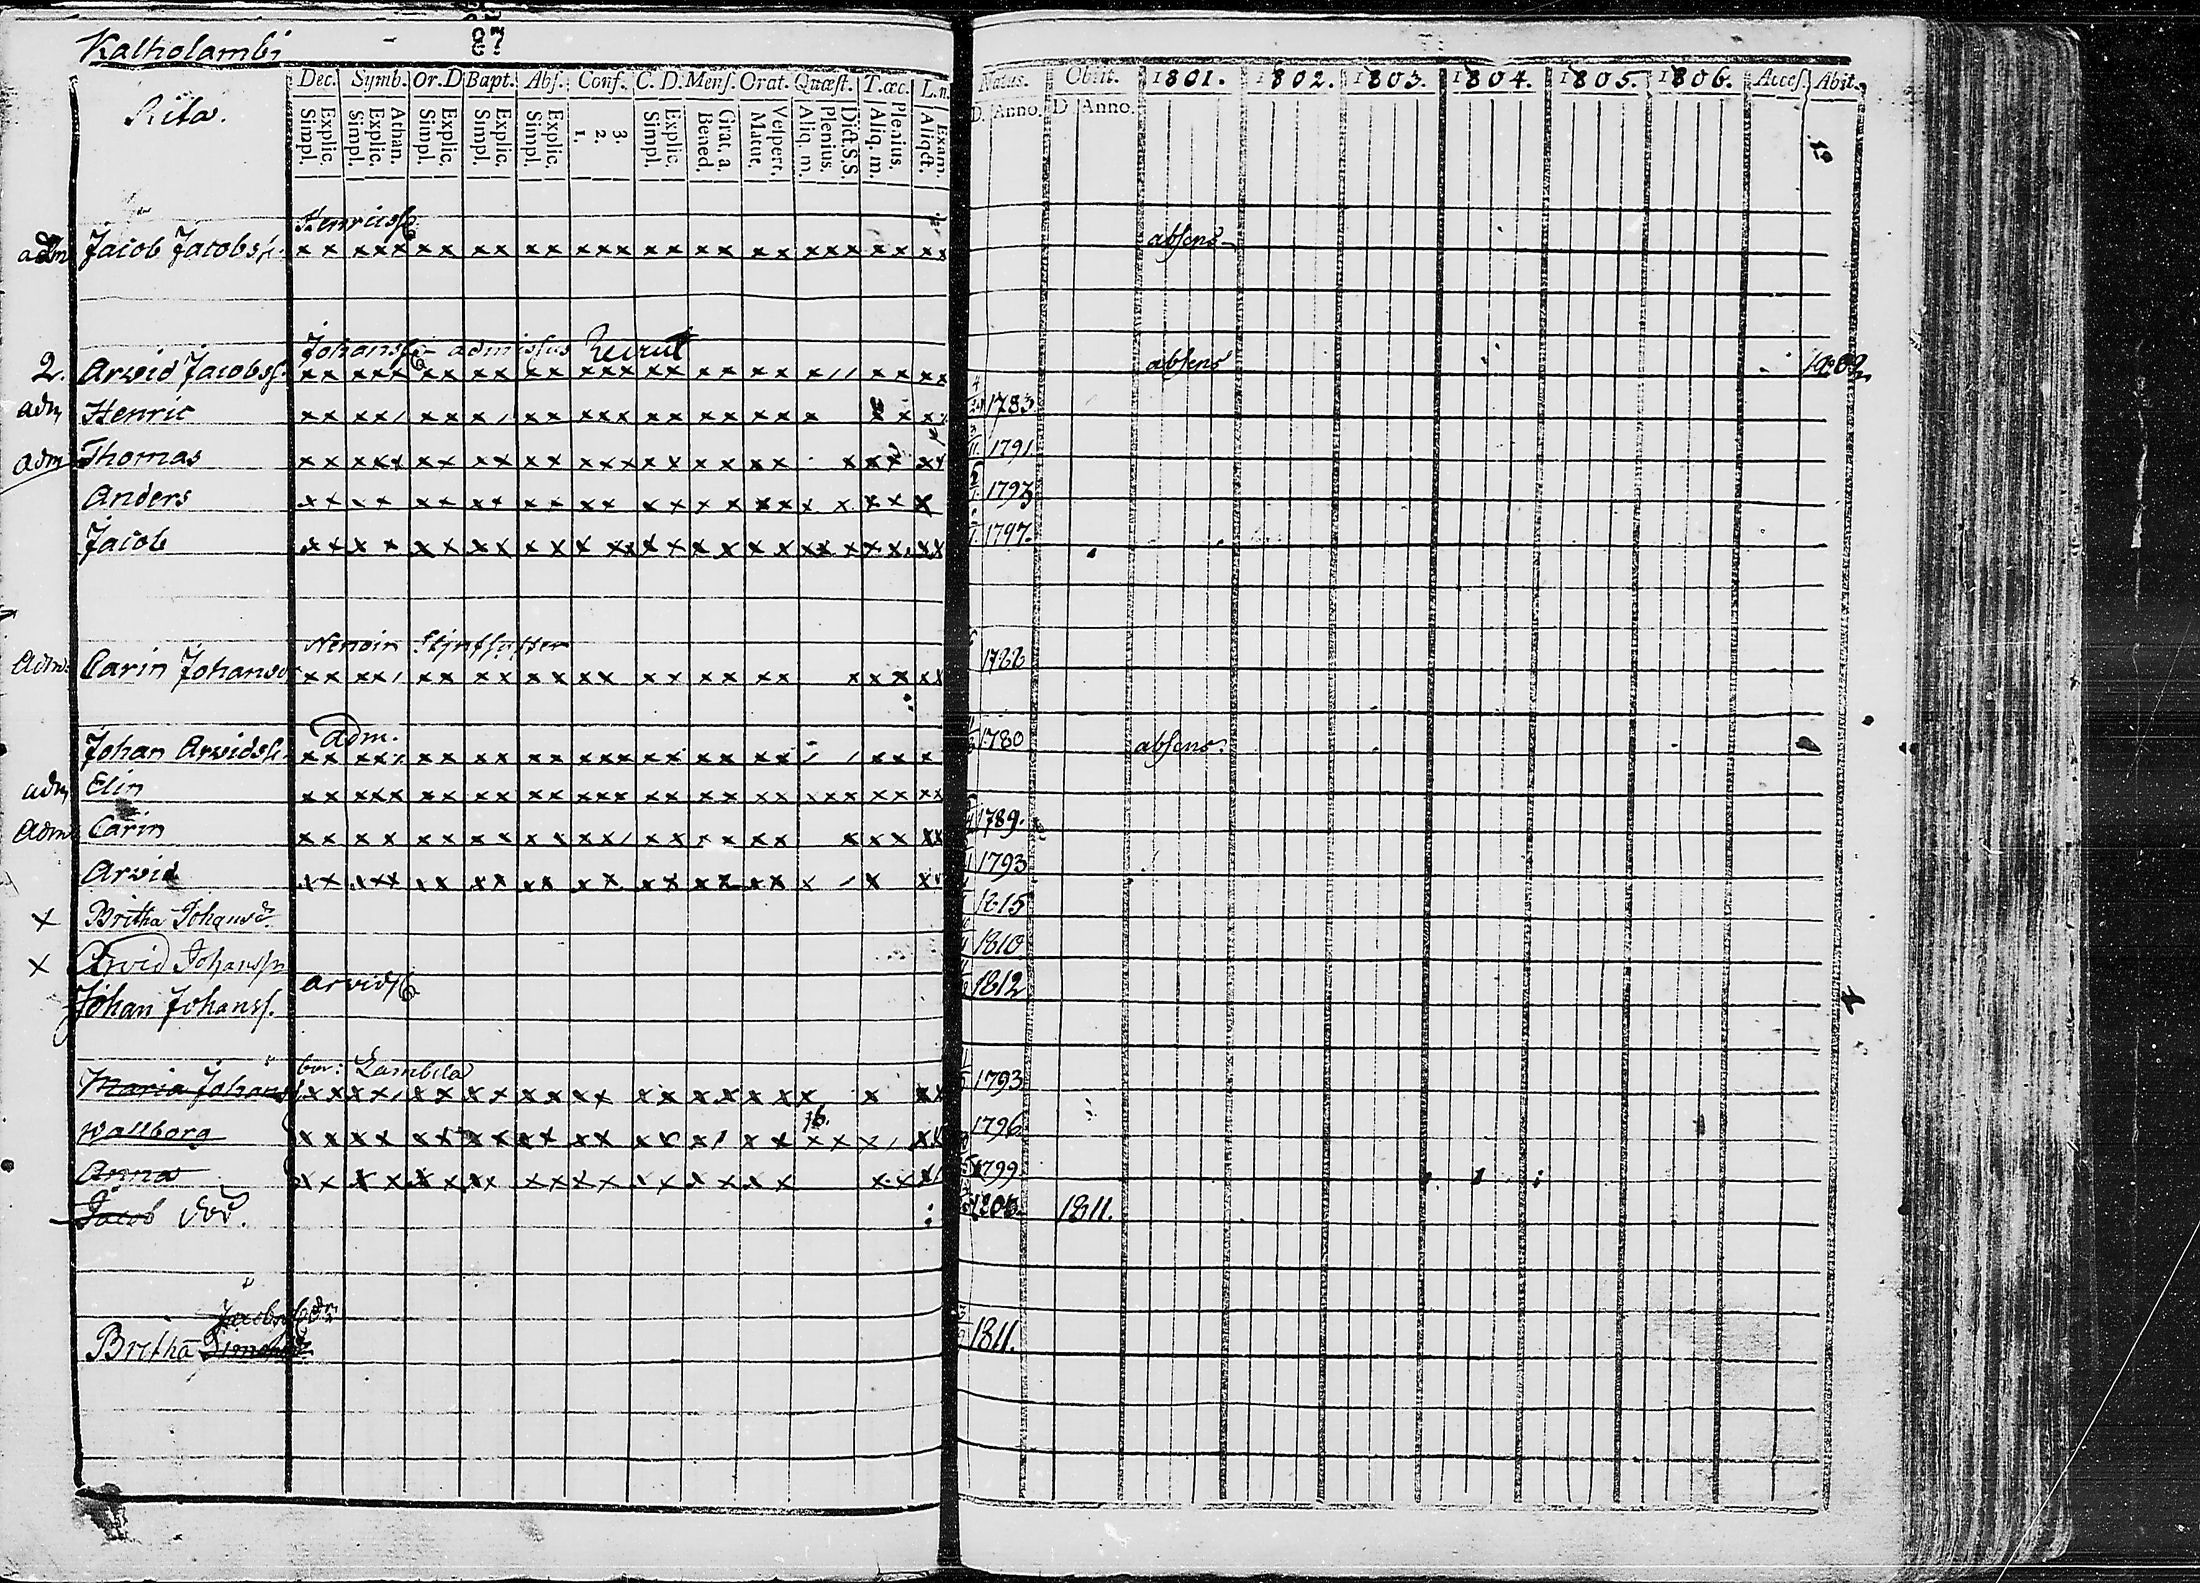 Katholambi 87
Rita.
Dec. Symb. Or. D Bapt. Abs. Conf. C. D. Mens. Orat. Quæst. T. œc. L. n.
Simpl. Explic. Simpl. Explic. Athan. Simpl. Explic. Simpl. Explic. Simpl. Explic. 1. 2. 3. Simpl. Explic. Bened. Grat. a. Matut. Vespert. Aliq. m. Plenius. Dict. S. S Aliq. m. Plenius. Aliqct. Exam.
Natus. Obiit. 1801. 1802. 1803. 1804. 1805. 1806. Access. Abit.
D. Anno. D Anno.
Henricss
adm Jacob Jacobss. absens
Johanss admissus
2. Arvid Jacobss. absens 1802
adm Henric 1783
adm Thomas 1791
Anders 1793
Jacob 1797.
Adm. Carin Johansd 1788
adm.
Johan Arvidss. 1780 absens.
adm Elin
Adm Carin 1789.
Arvid 1793
x Britha Johansd. 1815
x Arvid Johanss 1810
Arvidss
Johan Johanss. 1812
Lambila
Maria Johans 1793
Wallborg 1796
Anna 1799
Jacob död. 1811.
Jacobs dr
Britha 1811.